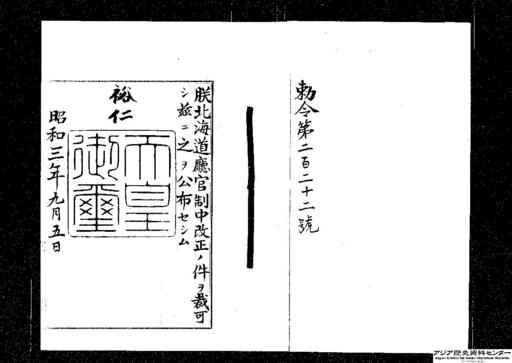 勅令第二百二十二號
朕北海道廳官制中改正ノ件ヲ裁可
シ茲ニ之ヲ公布セシム
裕仁
天皇
御璽
昭和三年九月五日
アジア歴史資料センター
Japan Center for Asian Historical Records